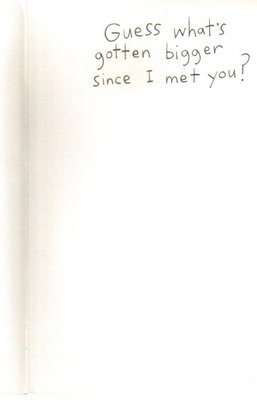 Guess what's
gotten bigger
since I met you?